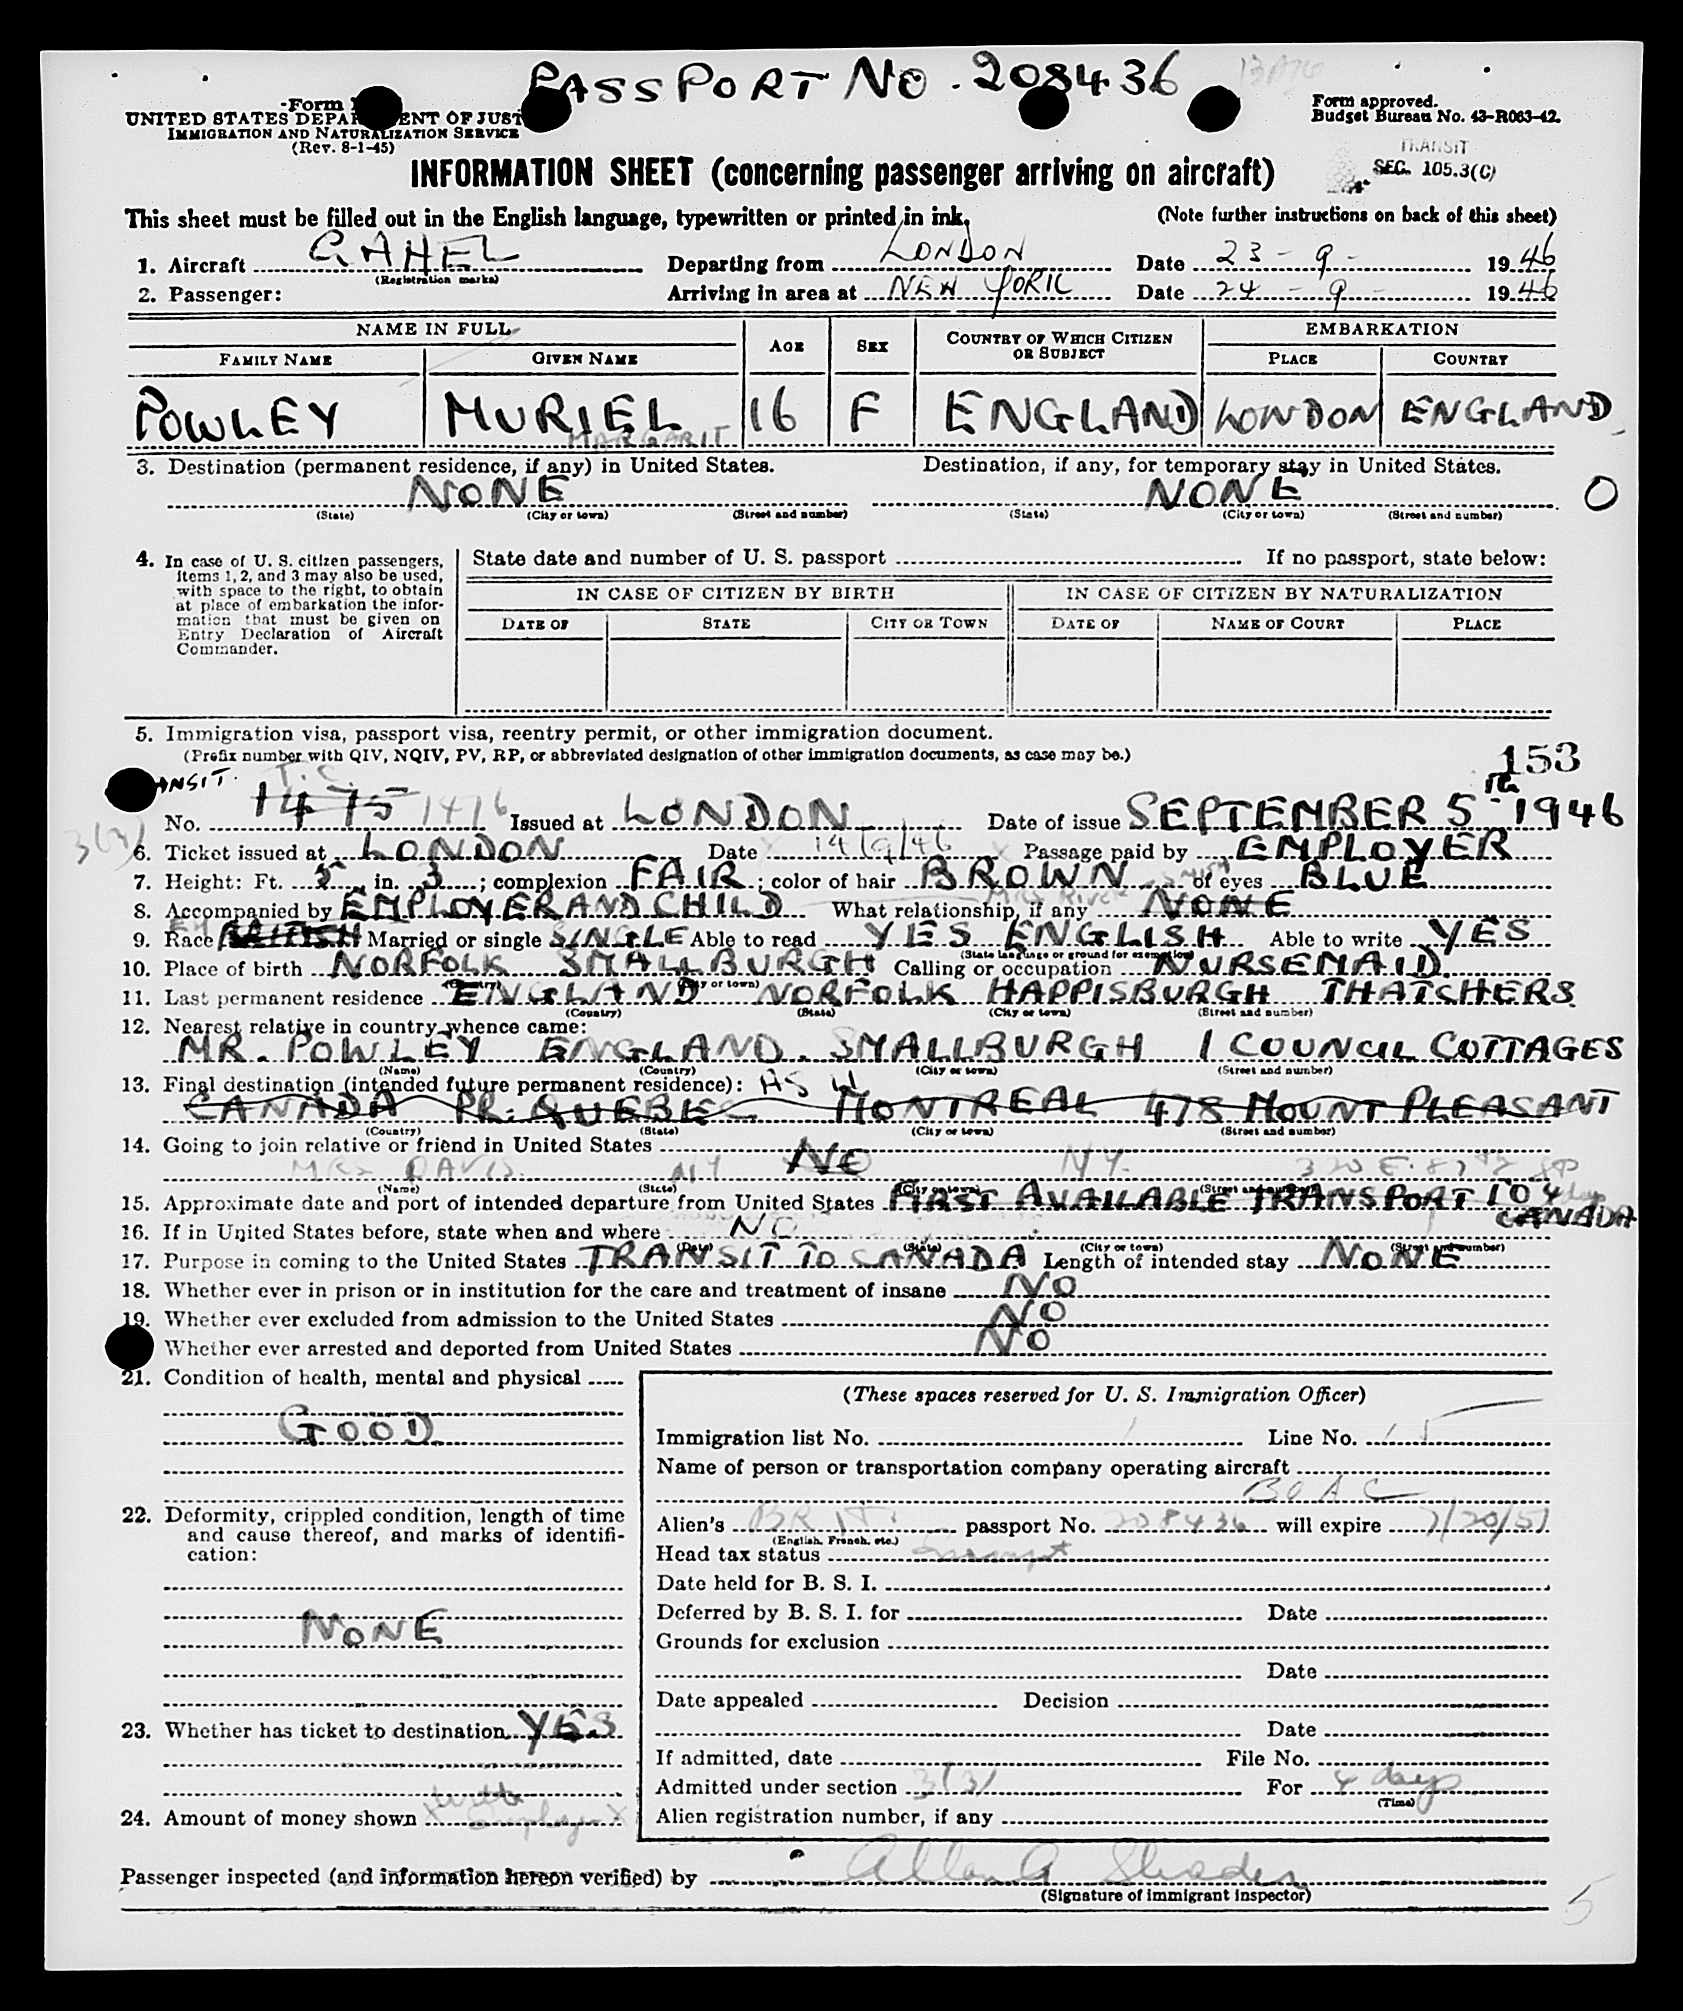 PASSPORT NO. 208436
Form
UNITED STATES DEPARTMENT OF JUSTICE
IMMIGRATION AND NATURALIZATION SERVICE
(Rev. 8-1-45)
Form approved.
Budget Bureau No. 43-R063-42.
TRANSIT
SEC. 105.3(C)
INFORMATION SHEET (concerning passenger arriving on aircraft)
This sheet must be filled out in the English language, typewritten or printed in ink. (Note further instructions on back of this sheet)
1. Aircraft GAHEL Departing from LONDON Date 23-9- 1946
(Registration marks)
2. Passenger: Arriving in area at NEW YORK Date 24-9- 1946
NAME IN FULL AGE SEX COUNTRY OF WHICH CITIZEN OR SUBJECT EMBARKATION
FAMILY NAME GIVEN NAME PLACE COUNTRY
POWLEY MURIEL 16 F ENGLAND LONDON ENGLAND
MARGARIT
3. Destination (permanent residence, if any) in United States. Destination, if any, for temporary stay in United States.
NONE NONE O
(State) (City or town) (Street and number) (State) (City or town) (Street and number)
4. In case of U. S. citizen passengers, items 1, 2, and 3 may also be used, with space to the right, to obtain at place of embarkation the information that must be given on Entry Declaration of Aircraft Commander.
State date and number of U. S. passport If no passport, state below:
IN CASE OF CITIZEN BY BIRTH IN CASE OF CITIZEN BY NATURALIZATION
DATE OF STATE CITY OR TOWN DATE OF NAME OF COURT PLACE
5. Immigration visa, passport visa, reentry permit, or other immigration document.
(Prefix number with QIV, NQIV, PV, RP, or abbreviated designation of other immigration documents, as case may be.)
153
ANSIT. T.C.
No. 1475 1476 Issued at LONDON Date of issue SEPTEMBER 5th 1946
6. Ticket issued at LONDON Date 14/9/46 Passage paid by EMPLOYER
7. Height: Ft. 5 in. 3; complexion FAIR; color of hair BROWN of eyes BLUE
8. Accompanied by EMPLOYER AND CHILD What relationship, if any NONE
9. Race Married or single SINGLE Able to read YES ENGLISH Able to write YES
(State language or ground for exemption)
10. Place of birth NORFOLK SMALLBURGH Calling or occupation NURSEMAID
(Country) (City or town)
11. Last permanent residence ENGLAND NORFOLK HAPPISBURGH THATCHERS
(Country) (State) (City or town) (Street and number)
12. Nearest relative in country whence came:
MR. POWLEY ENGLAND. SMALLBURGH 1 COUNCIL COTTAGES
(Name) (Country) (City or town) (Street and number)
13. Final destination (intended future permanent residence):
CANADA PR. QUEBEC MONTREAL 478 MOUNT PLEASANT
(Country) (State) (City or town) (Street and number)
14. Going to join relative or friend in United States NO
MRS DAVIS NY N.Y.
(Name) (State) (City or town) (Street and number)
15. Approximate date and port of intended departure from United States FIRST AVAILABLE TRANSPORT TO CANADA
16. If in United States before, state when and where NO
(Date) (State) (City or town) (Street and number)
17. Purpose in coming to the United States TRANSIT TO CANADA Length of intended stay NONE
18. Whether ever in prison or in institution for the care and treatment of insane NO
19. Whether ever excluded from admission to the United States NO
Whether ever arrested and deported from United States NO
21. Condition of health, mental and physical
GOOD
22. Deformity, crippled condition, length of time and cause thereof, and marks of identification:
NONE
23. Whether has ticket to destination YES
24. Amount of money shown with Employer
(These spaces reserved for U. S. Immigration Officer)
Immigration list No. Line No. 5
Name of person or transportation company operating aircraft
BOAC
Alien's BRIT. passport No. 208436 will expire 7/20/51
(English, French, etc.)
Head tax status
Date held for B. S. I.
Deferred by B. S. I. for Date
Grounds for exclusion
Date
Date appealed Decision
Date
If admitted, date File No.
Admitted under section 3(3) For 4 days
(Time)
Alien registration number, if any
Passenger inspected (and information hereon verified) by Allan A Shader
(Signature of immigrant inspector)
5